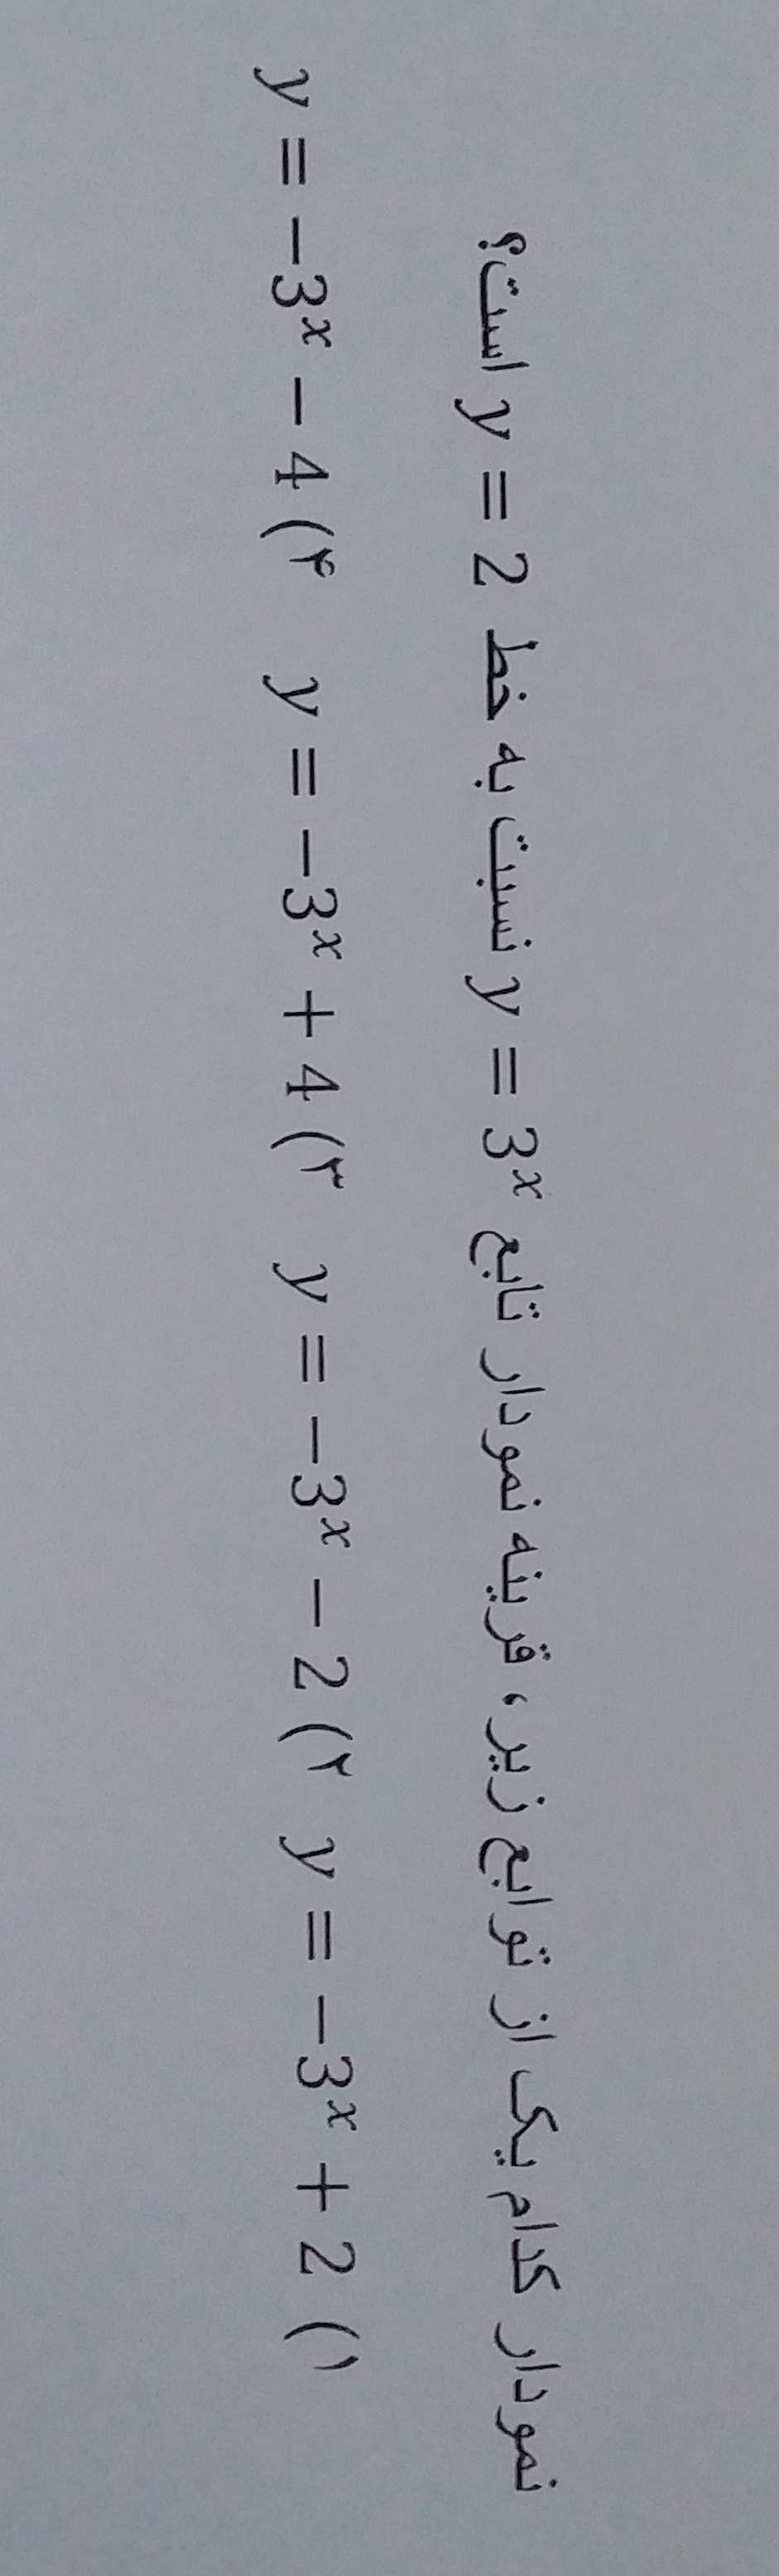 نمودار کدام یک از توابع زیر، قرینه نمودار تابع y = 3^x نسبت به خط y = 2 است؟
۱) y = −3^x + 2 ۲) y = −3^x − 2 ۳) y = −3^x + 4 ۴) y = −3^x − 4